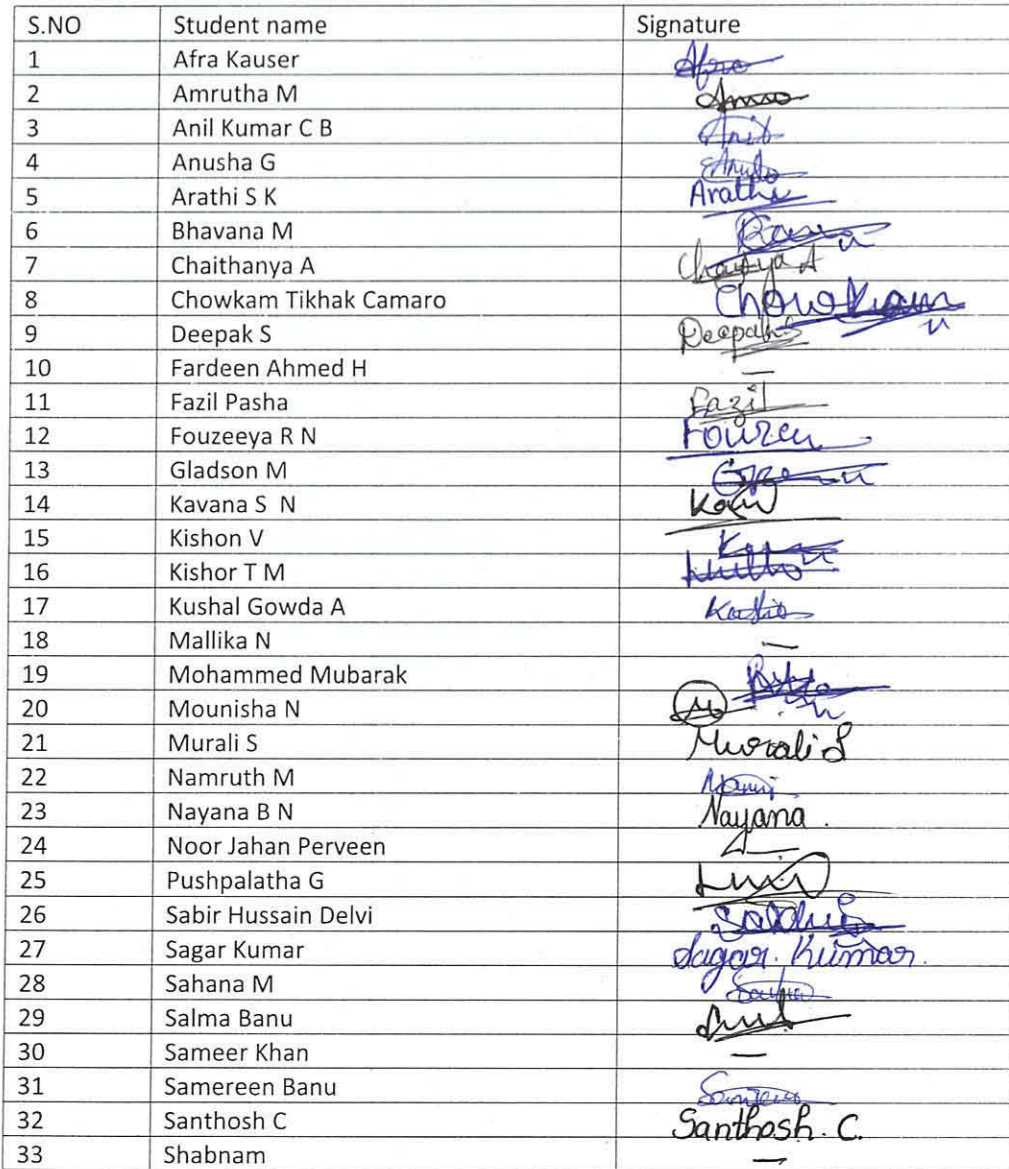 S.NO Student name Signature
1 Afra Kauser Afra
2 Amrutha M
3 Anil Kumar C B Anil
4 Anusha G
5 Arathi S K Arathi
6 Bhavana M
7 Chaithanya A
8 Chowkam Tikhak Camaro Chowkam
9 Deepak S Deepak S
10 Fardeen Ahmed H —
11 Fazil Pasha Fazil
12 Fouzeeya R N
13 Gladson M
14 Kavana S N
15 Kishon V
16 Kishor T M
17 Kushal Gowda A
18 Mallika N —
19 Mohammed Mubarak
20 Mounisha N
21 Murali S Murali S
22 Namruth M
23 Nayana B N Nayana .
24 Noor Jahan Perveen —
25 Pushpalatha G
26 Sabir Hussain Delvi
27 Sagar Kumar Sagar. Kumar.
28 Sahana M
29 Salma Banu
30 Sameer Khan —
31 Samereen Banu
32 Santhosh C Santhosh. C.
33 Shabnam —